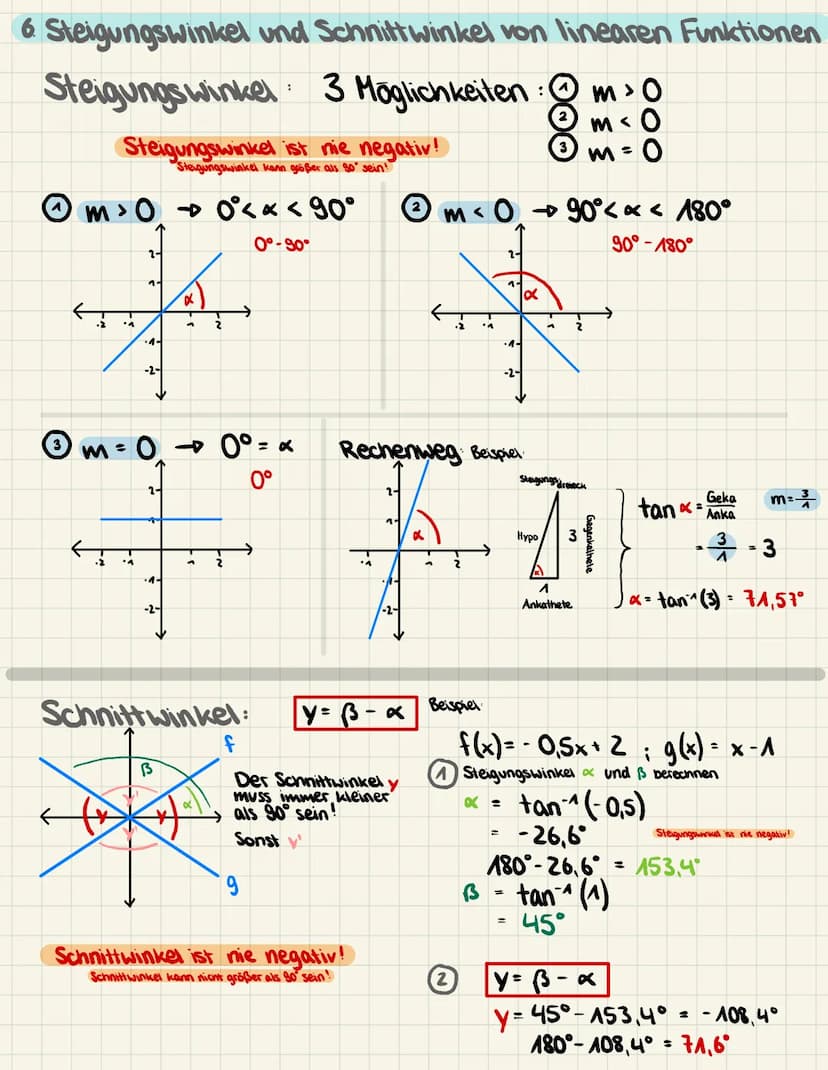 6. Steigungswinkel und Schnittwinkel von linearen Funktionen
Steigungswinkel: 3 Möglichkeiten: ① m > 0
② m < 0
③ m = 0
Steigungswinkel ist nie negativ!
Steigungswinkel kann größer als 90° sein!
① m > 0 → 0° < α < 90°
0° - 90°
2
1
α
-2 -1 1 2
-1
-2
② m < 0 → 90° < α < 180°
90° - 180°
2
1
α
-2 -1 1 2
-1
-2
③ m = 0 → 0° = α
0°
2
1
-2 -1 1 2
-1
-2
Rechenweg: Beispiel
2
1
α
-1 1 2
-1
-2
Steigungsdreieck
Hypo 3 Gegenkathete
α
1
Ankathete
tan α = Geka/Anka m = 3/1
= 3/1 = 3
α = tan⁻¹(3) = 71,57°
Schnittwinkel: γ = β - α
f
β
γ' α
γ γ
γ'
g
Der Schnittwinkel γ
muss immer kleiner
als 90° sein!
Sonst γ'
Schnittwinkel ist nie negativ!
Schnittwinkel kann nicht größer als 90° sein!
Beispiel
f(x) = - 0,5x + 2 ; g(x) = x - 1
① Steigungswinkel α und β berechnen
α = tan⁻¹(-0,5)
= -26,6° Steigungswinkel ist nie negativ!
180° - 26,6° = 153,4°
β = tan⁻¹(1)
= 45°
② γ = β - α
γ = 45° - 153,4° = - 108,4°
180° - 108,4° = 71,6°